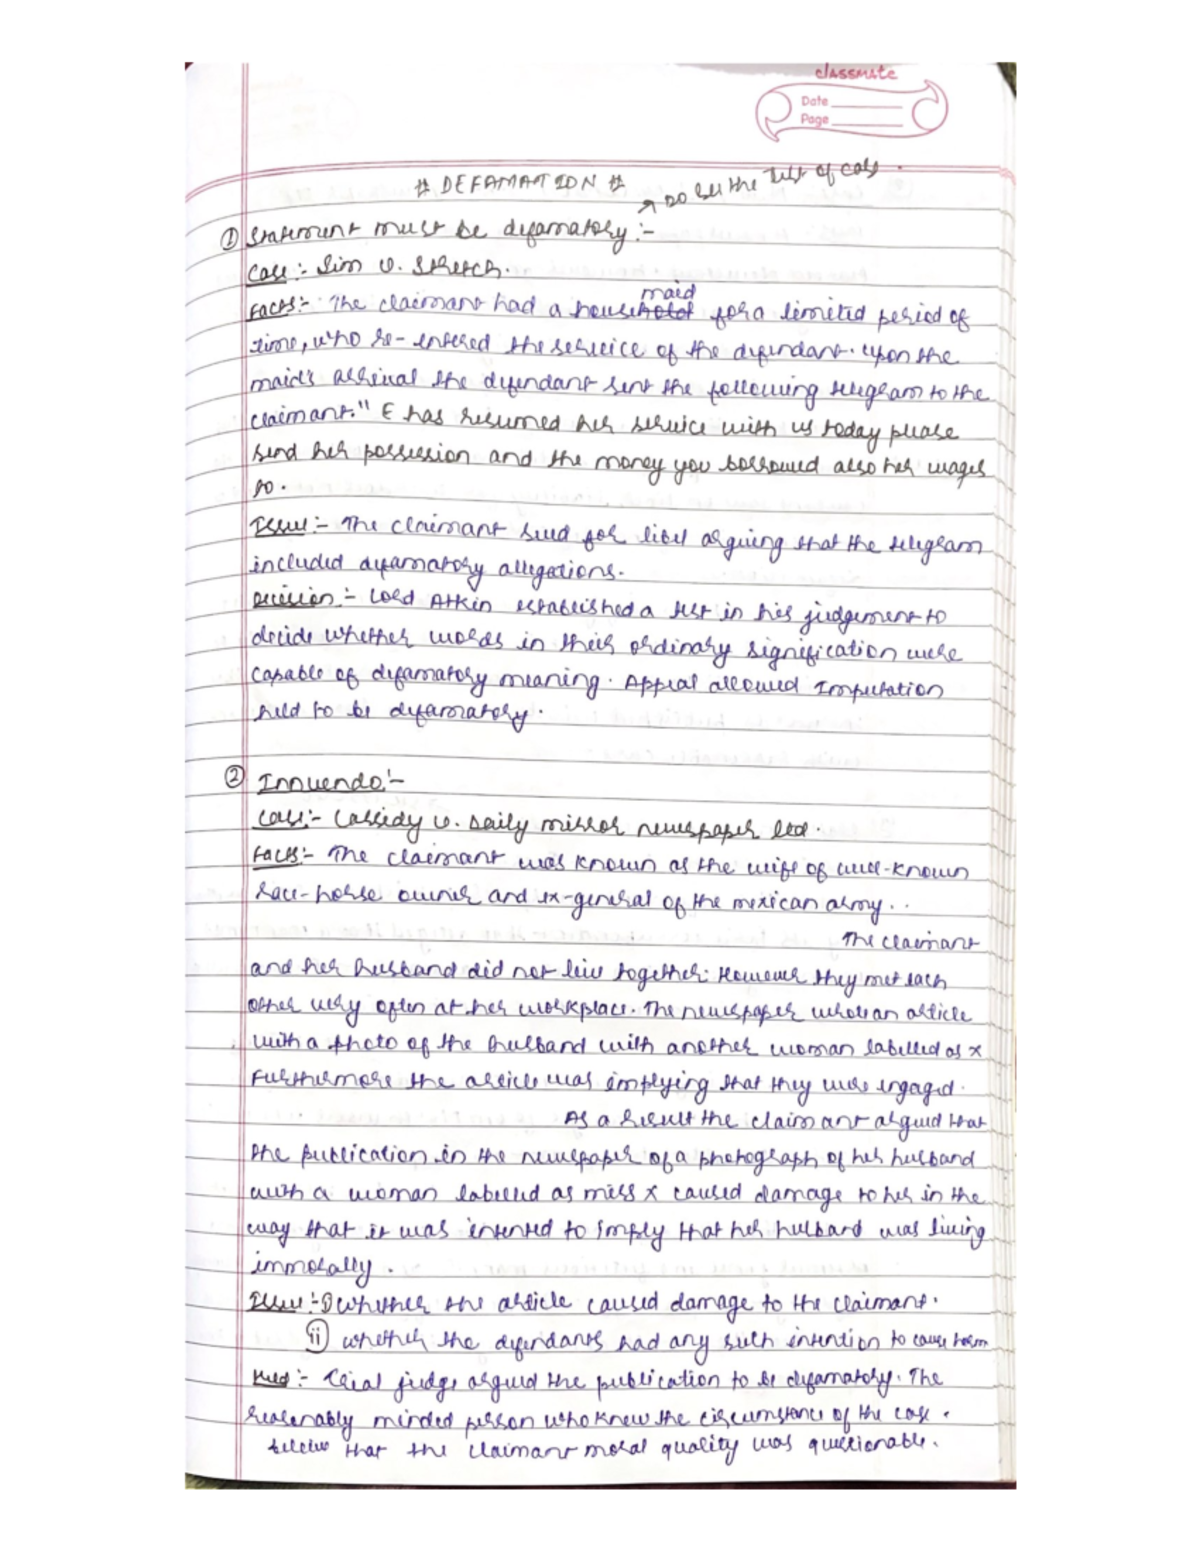 classmate
Date
Page
# DEFAMATION #
→ DO see the test of case.
① Statement must be defamatory :-
Case :- Sim v. Stretch.
Facts:- The claimant had a house maid for a limited period of
time, who re-entered the service of the defendant. Upon the
maid's arrival the defendant sent the following telegram to the
claimant." E has resumed her service with us today please
send her possession and the money you borrowed also her wages
to.
Issue :- The claimant sued for libel arguing that the telegram
included defamatory allegations.
Decision :- Lord Atkin established a test in his judgement to
decide whether words in their ordinary signification were
capable of defamatory meaning. Appeal allowed Imputation
held to be defamatory.
② Innuendo:-
Case:- Cassidy v. Daily mirror newspaper ltd.
Facts:- The claimant was known as the wife of well-known
race-horse owner and ex-general of the mexican army..
The claimant
and her husband did not live together. However they met each
other very often at her workplace. The newspaper wrote an article
with a photo of the husband with another woman labelled as x
Furthermore the article was implying that they were engaged.
As a result the claimant argued that
the publication in the newspaper of a photograph of her husband
with a woman labelled as miss x caused damage to her in the
way that it was intented to imply that her husband was living
immorally.
Issue :- i) whether the article caused damage to the claimant.
ii) whether the defendants had any such intention to cause harm
Held :- Trial judge argued the publication to be defamatory. The
reasonably minded person who knew the circumstance of the case.
believe that the claimant moral quality was questionable.